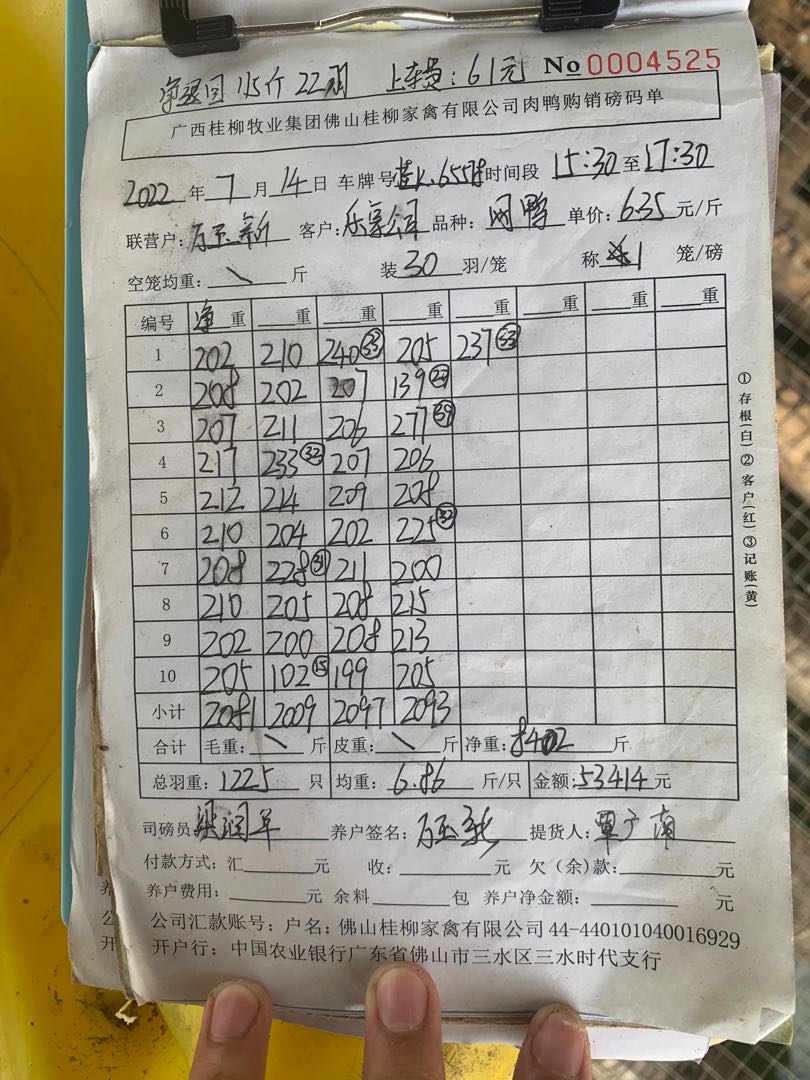 115斤 22羽 上车费:61元 No 0004525
广西桂柳牧业集团佛山桂柳家禽有限公司肉鸭购销磅码单
2022 年 7 月 14 日 车牌号 时间段 15:30 至 17:30
联营户: 客户:乐享公司 品种: 网鸭 单价:6.35 元/斤
空笼均重: \ 斤 装 30 羽/笼 称 1 笼/磅
编号 净 重 重 重 重 重 重 重 重
1 202 210 240 33 205 237 33
2 208 202 207 139
3 207 211 206 277 39
4 217 233 32 207 206
5 212 214 209 208
6 210 204 202 225 32
7 208 228 31 211 200
8 210 205 208 215
9 202 200 208 213
10 205 102 15 199 205
小计 2081 2009 2097 2093
合计 毛重: \ 斤 皮重: \ 斤 净重:8402 斤
总羽重:1225 只 均重: 6.86 斤/只 金额:53414元
司磅员 梁润草 养户签名: 提货人:覃广南
付款方式:汇 元 收: 元 欠(余)款: 元
养户费用: 元 余料 包 养户净金额: 元
公司汇款账号:户名:佛山桂柳家禽有限公司44-440101040016929
开户行:中国农业银行广东省佛山市三水区三水时代支行
①存根(白)②客户(红)③记账(黄)